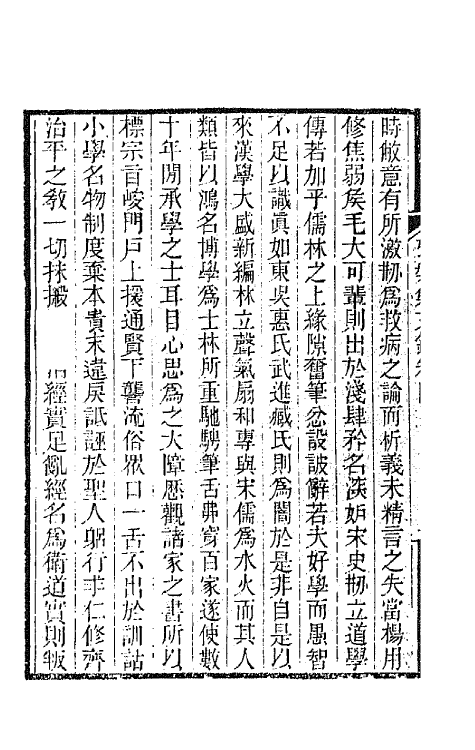 時敏意有所激剏爲救病之論而析義未精言之失當楊用
修焦弱矦毛大可輩則出於淺肆矜名深妒宋史剏立道學
傳若加乎儒林之上緣隙奮筆忿設詖辭若夫好學而愚智
不足以識真如東吳惠氏武進臧氏則爲闇於是非自是以
來漢學大盛新編林立聲氣扇和專與宋儒爲水火而其人
類皆以鴻名博學爲士林所重馳騁筆舌弗穿百家遂使數
十年閒承學之士耳目心思爲之大障歷觀諸家之書所以
標宗旨峻門戶上援通賢下讋流俗衆口一舌不出於訓詁
小學名物制度棄本貴末違戾詆誣於聖人躬行求仁修齊
治平之敎一切抹摋 經實足亂經名爲衛道實則畔